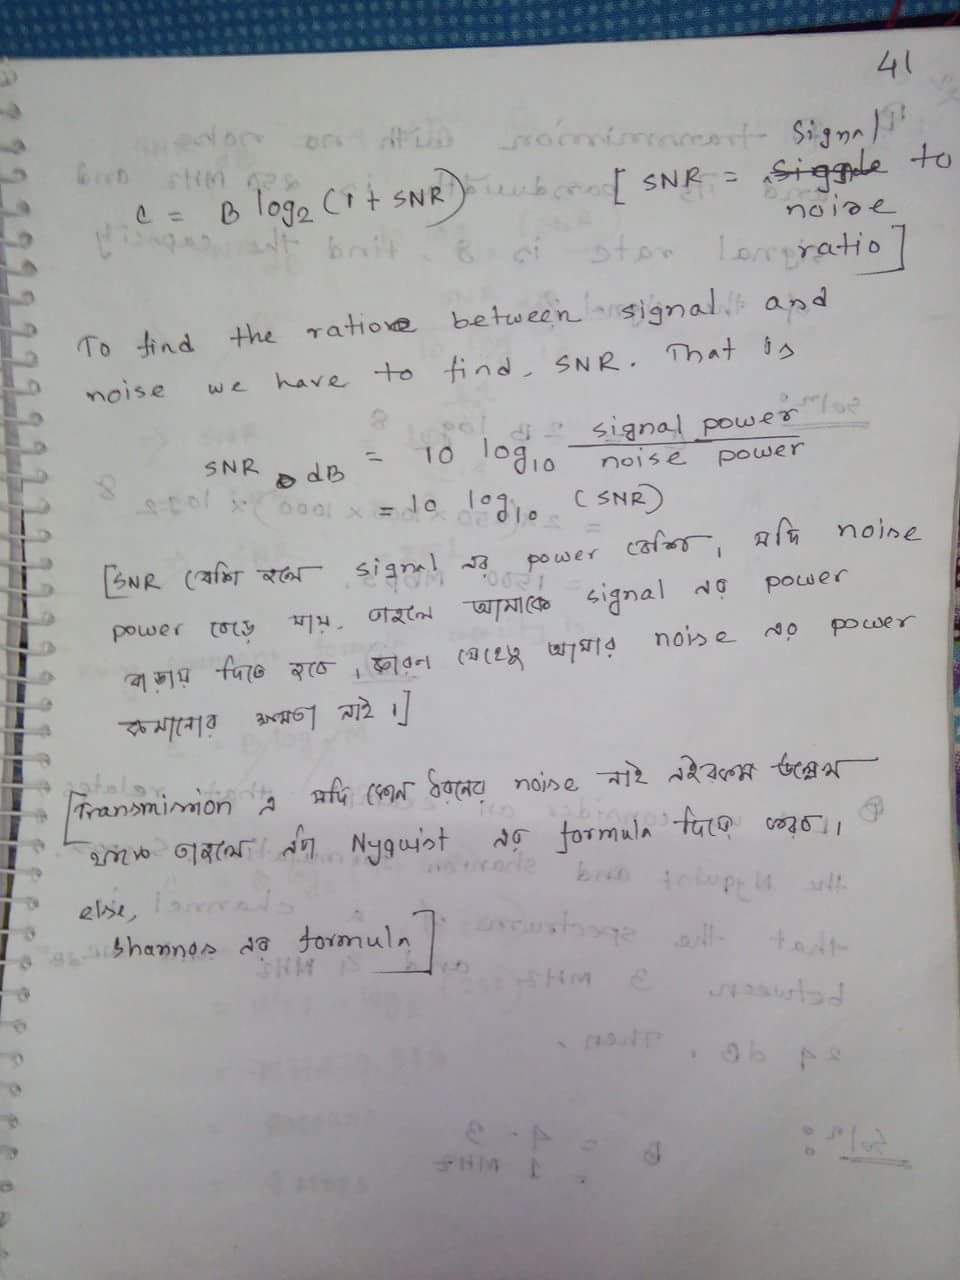 41
C = B log2 (1 + SNR) [ SNR = signal to
noise
ratio ]
To find the ratio between signal and
noise we have to find, SNR. That is
SNR dB = 10 log10 signal power
noise power
= 10 log10 (SNR)
[SNR বেশি হলে signal এর power বেশি, যদি noise
power বেড়ে যায়, তাহলে আমাকে signal এর power
বাড়ায় দিতে হবে, কারন যেহেতু আমার noise এর power
কমানোর ক্ষমতা নাই।]
[Transmission এ যদি কোন ধরনের noise নাই এইরকম উল্লেখ
থাকে তাহলে এটা Nyquist এর formula দিয়ে করব।
else,
shannon এর formula]